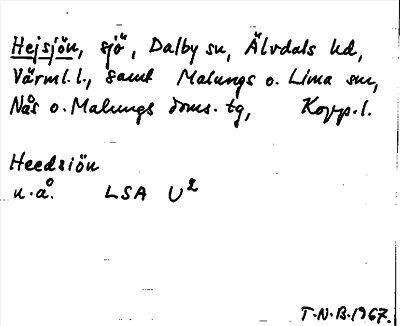 Hejsjön, sjö, Dalby sn, Älvdals hd,
Värml.l., samt Malungs o. Lima snr,
Nås o. Malungs doms. tg, Kopp.l.
Heedsiön
u.å. LSA U²
T.N.B.1967.